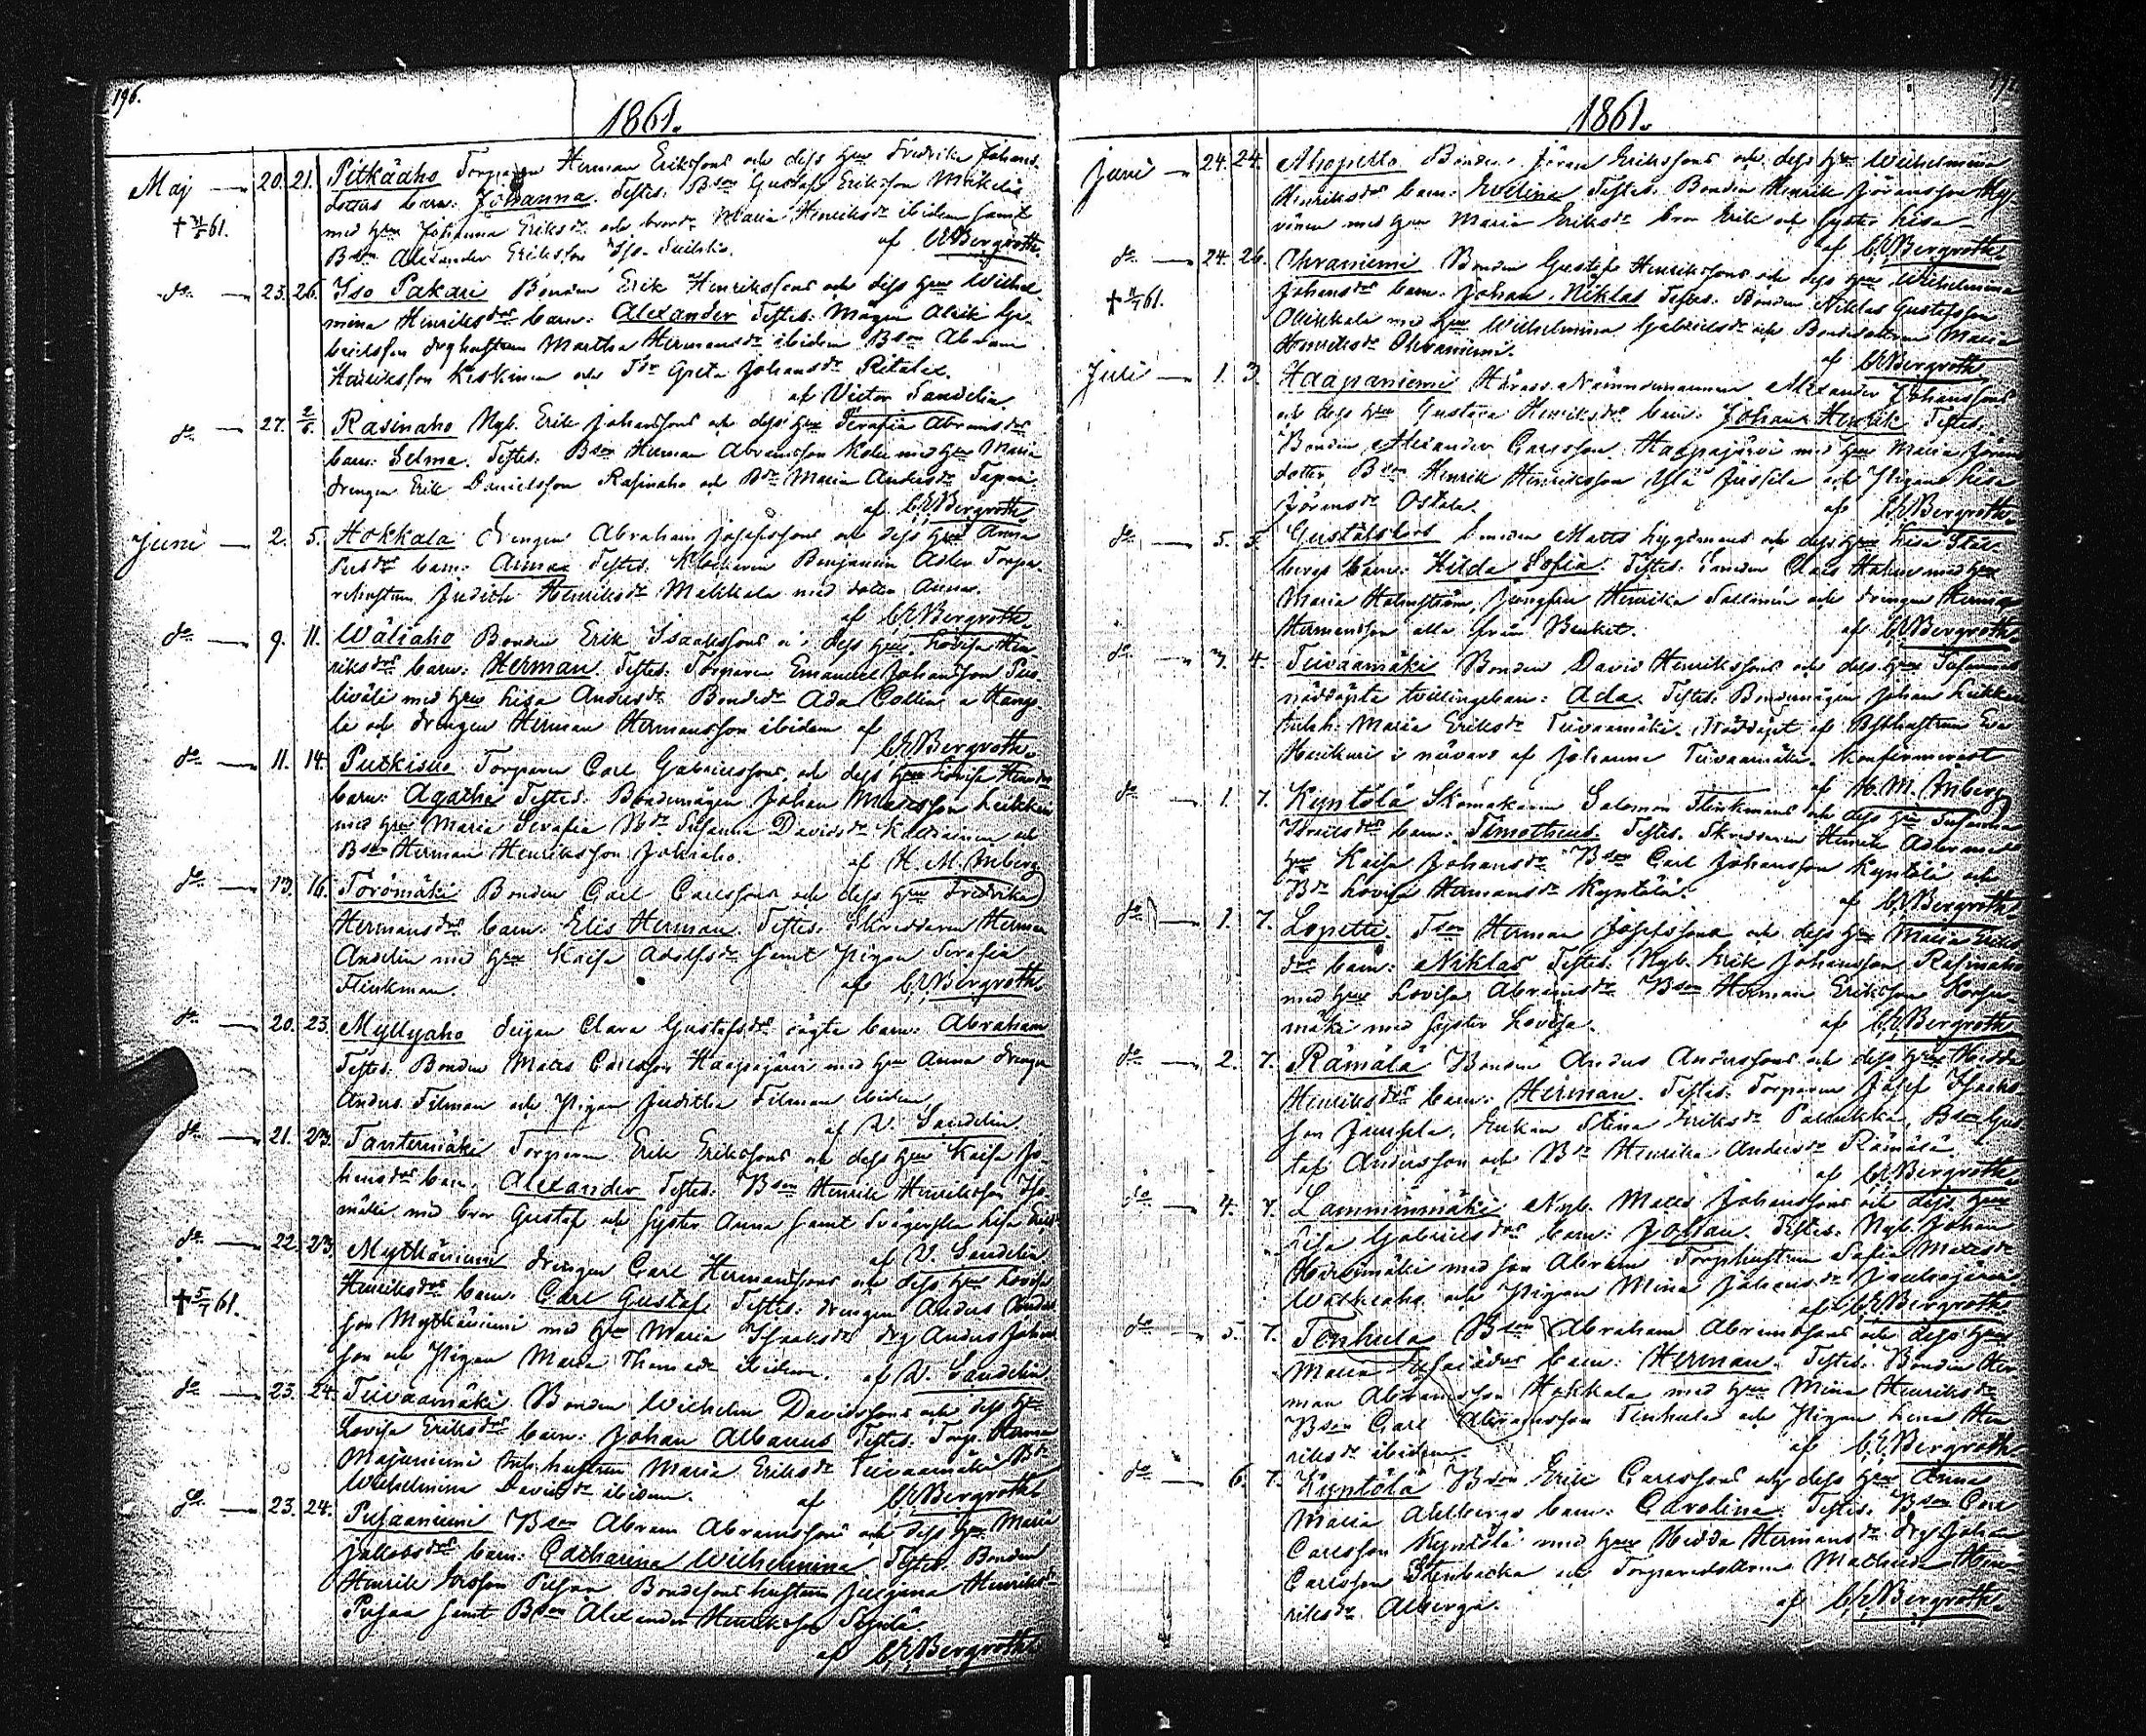 196.
1861.
Maj — 20. 21. Pitkäaho Torparen Herman Erikssons och dess hu Fredrika Johans
dotters barn: Johanna. Testes: Bson Gustaf Eriksson Mikkilä
† 31/5 61. med hu Johanna Eriksdr och Maria Henriksdr ibidem samt
Bson Alexander Eriksson Iso af CEBergroth.
do — 23. 26. Iso Pakari Bonden Erik Henrikssons och dess hu Wilhel
mina Henriksdrs barn: Alexander Testes: Mågen Ga
brielsson hustrun Martha Hermansdr ibidem Bson Abram
Henriksson Keskinen och Tdr Greta Johansdr
af Victor Sandelin.
do — 27. 2/6. Rasinaho Nyb. Erik Johanssons och dess hu Serafia Abramsdrs
barn: Selma. Testes: Bson Herman Abramsson med hu Maria
drengen Erik Danielsson Rasinaho och Bdr Maria Andersdr
af CEBergroth
Juni — 2. 5. Hokkala Drengen Abraham Josefssons och dess hu Anna
barn: Anna Testes: Klockaren Benjamin Adler Torpa
rehustrun Judith Henriksdr Makkala med dotter Anna.
af CEBergroth.
do — 9. 11. Wäliaho Bonden Erik Isaakssons o. dess hu Lovisa Hen
riksdrs barn: Herman. Testes: Torparen Emanuel Johansson
med hu Lisa Andersdr Bondedr Ada Collin a Kang
la och drengen Herman Hermansson ibidem af
CEBergroth.
do — 11. 14. Putkisuo Torparen Carl Gabrielssons och dess hu Lovisa
barn: Agatha Testes: Bondemågen Johan Mattsson Leikkari
med hu Maria Serafia Bdr Susanna Davidsdr och
Bson Herman Henriksson Jokiaho. af H. M. Anberg
do — 13. 16. Törömäki Bonden Carl Carlssons och dess hu Fredrika
Hermansdrs barn: Elis Herman. Testes: Skreddaren Herman
Andelin med hu Kaisa Adolfsdr samt Pigan Serafia
Flinkman. af CEBergroth
do — 20. 23. Myllyaho Pigan Clara Gustafsdrs oägta barn: Abraham
Testes: Bonden Matts Carlsson Haapajärvi med hu Anna drengen
Anders Filman och Pigan Juditha Filman ibidem
af V. Sandelin.
do — 21. 23. Tantermäki Torparen Erik Erikssons och dess hu Kaisa Jo
hansdrs barn: Alexander Testes: Bson Henrik Henriksson
mäki med bror Gustaf och syster Anna samt Svägerskan Lisa
af V. Sandelin
do — 22. 23. Mytkäniemi drengen Carl Hermanssons och dess hu Lovisa
Henriksdrs barn: Carl Gustaf Testes: drengen Anders Anders
† 5/7 61. son Mytkäniemi med hu Maria Isaaksdr drg Anders Johan
son och Pigan Maria Thomasdr ibidem. af V. Sandelin
do — 23. 24. Tiivaamäki Bonden Wilhelm Davidssons och dess hu
Lovisa Eriksdrs barn: Johan Albanus Testes: Torp. Herman
Majaniemi hustrun Maria Eriksdr Tiivaamäki Bdr
Wilhelmina Davidsdr ibidem. af CEBergroth
do — 23. 24. Pusaaniemi Bson Abram Abramssons och dess hu Maria
Jakobsdrs barn: Catharina Wilhelmina. Testes: Bonden
Henrik Ersson Pusaa Bondesons hustrun Juliana Henriksdr
Pusaa samt Bson Alexander Henriksson
af CEBergroth
1861.
Juni — 24. 24. Ahopelto Bonden Jöran Erikssons och dess hu Wilhelmina
Henriksdrs barn: Evelina Testes: Bonden Henrik Jöransson Hy
vönen med hu Maria Eriksdr bror Erik och syster Lisa
af CEBergroth
do — 24. 26. Ohraniemi Bonden Gustaf Henrikssons och dess hu Wilhelmina
† 61. Johansdrs barn: Johan Niklas Testes: Bonden Niklas Gustafsson
Ollikkala med hu Wilhelmina Gabrielsdr och Bondedottern Maria
Henriksdr Ohraniemi. af CEBergroth
Juli — 1. 3. Haapaniemi Härads Nämndemannen Alexander Johanssons
och dess hu Gustava Henriksdrs barn: Johan Henrik Testes:
Bonden Alexander Carlsson Haapajärvi med hu Maria Jörans
dotter Bson Henrik Henriksson Ylä Jussila och Pigan Lisa
Jöransdr Ostola. af CEBergroth
do — 5. 5. Smeden Matts Lygdmans och dess hu Lisa Stål
bergs barn: Hilda Sofia. Testes: Smeden Claes med hu
Maria Holmström, Jungfru Henrika Sallmén och drengen Herman
Hermansson alla från Bruket. af CEBergroth
do — 3. 4. Tiivaamäki Bonden David Henrikssons och dess hu Susannas
nöddöpta tvillingebarn: Ada. Testes: Bondemågen Johan
Maria Eriksdr Tiivaamäki. Nöddöpt af hustrun Eva
i närvaro af Johanna Tiivaamäki. Konfirmerat
af H. M. Anberg
do — 1. 7. Kyntölä Skomakaren Salomon Flinkmans och dess hu Susanna
barn: Timotheus. Testes: Skreddaren Henrik Adler med
hu Kaisa Johansdr Bson Carl Johansson Kyntölä och
Bdr Lovisa Hermansdr Kyntölä. af CEBergroth
do — 1. 7. Lopetti Tson Herman Josefssons och dess hu Maria Eriks
drs barn: Niklas Testes: Nyb. Erik Johansson Rasinaho
med hu Lovisa Abramsdr Bson Herman Eriksson
mäki med syster Lovisa. af CEBergroth
do — 2. 7. Rämälä Bonden Anders Anderssons och dess hu Hedda
Henriksdrs barn: Herman. Testes: Torparen Josef Isaaks
son Enkan Stina Eriksdr Bson Gus
taf Andersson och Bdr Henrika Andersdr Rämälä
af CEBergroth
do — 4. 7. Lamminmäki Nyb. Matts Johanssons och dess hu
Lisa Gabrielsdrs barn: Johan. Testes: Nyb. Johan
med son Abram Torphustrun Sofia Mattsdr
och Pigan Mina Johansdr
af CEBergroth
do — 5. 7. Tenhula Bson Abraham Abramssons och dess hu
Maria barn: Herman. Testes: Bonden Her
man Abramsson Hokkala med hu Mina Henriksdr
Bson Carl Abramsson Tenhula och Pigan Lena Hen
riksdr ibidem. af CEBergroth
do — 6. 7. Kyntölä Bson Erik Carlssons och dess hu Anna
Maria Ahlbergs barn: Carolina. Testes: Bson Carl
Carlsson Kyntölä med hu Hedda Hermansdr drg Johan
Carlsson Stenbacka och Torparedottern Mathilda Hen
riksdr Alberga. af CEBergroth.